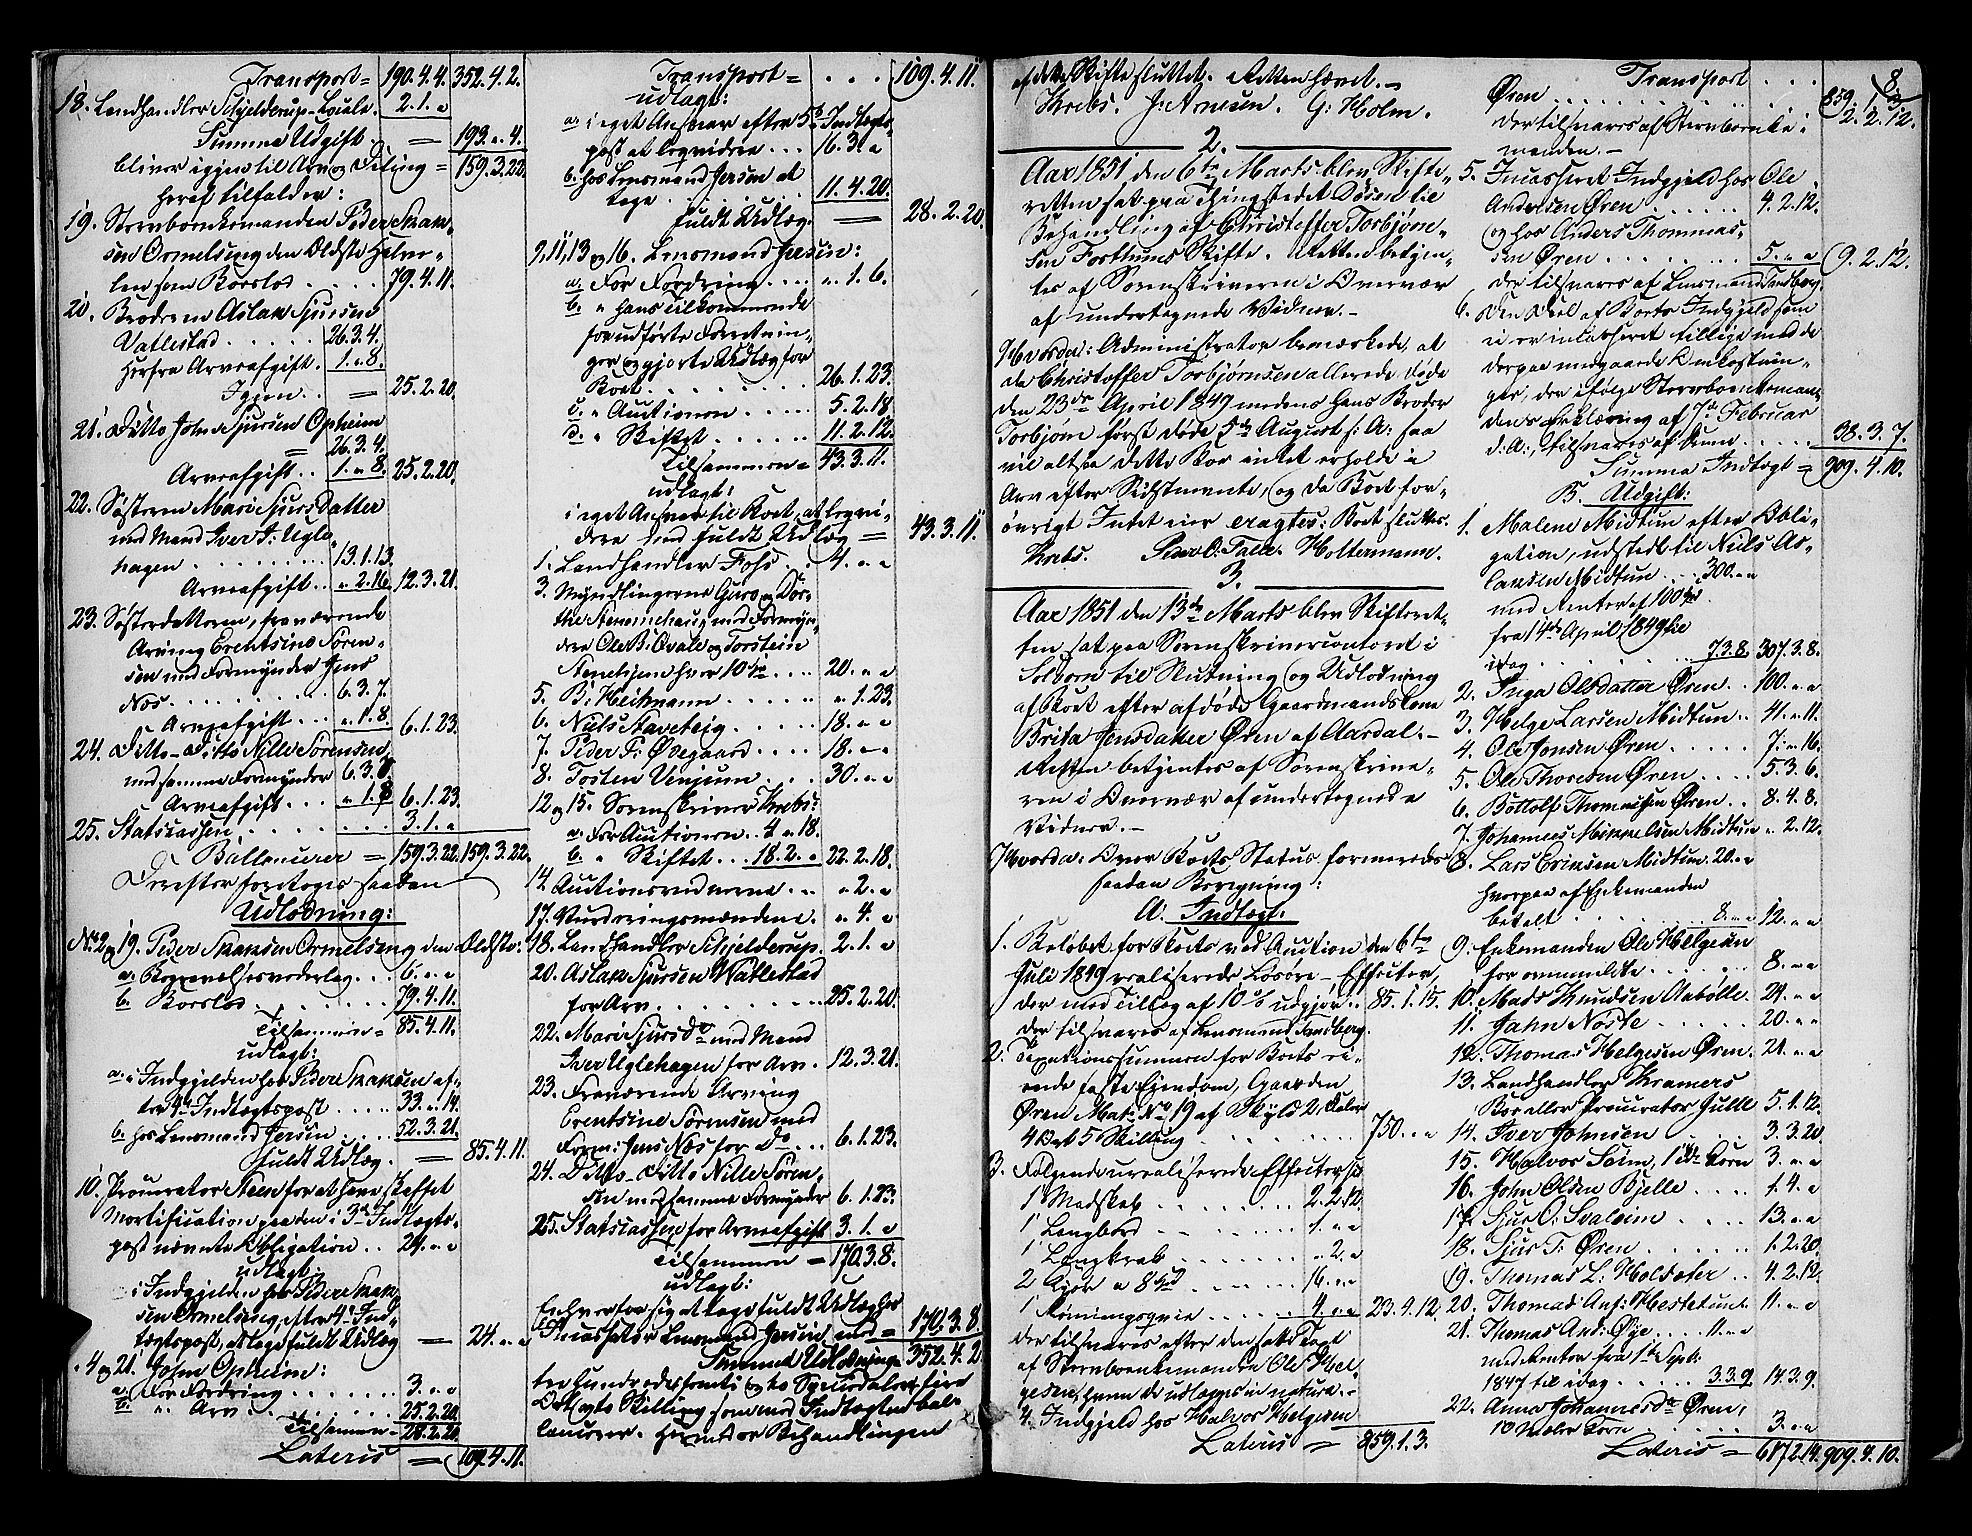 Transport = 190.4.4. 352.4.2.
18. Landhandler Schjelderup-Louise. 2.1.„
Summa Udgift = 193.„.4.
bliver igjen til Arv og Deling = 159.3.22.
heraf tilfalder:
19. Stervboenkemanden Peder Maak-
sen Ormelsung den Ældste Halve-
len som Boeslod . . . . 79.4.11.
20. Broderen Aslak Sjursens
Vatlestad . . . . . 26.3.4.
herfra Arveafgift. 1.„.8.
Igjen . . = 25.2.20.
21. Ditto John Sjursen Opheim
= 26.3.4.
Arveafgift . . 1.„.8. 25.2.20.
22. Søsteren Mari Sjurs Datter
med Mand Iver I: Ugle-
hagen . . . . . . . 13.1.13.
Arveafgift . . „.2.16. 12.3.21.
23. Søsterdatteren, fraværende
Arving Erentsine Søren-
sen med Formynder Jens
Næs . . . . . . . 6.3.7.
Arveafgift . . . „.1.8. 6.1.23.
24. Ditto-Ditto Nille Sørensen,
med samme Formynder 6.3.7.
Arveafgift . . . „.1.8. 6.1.23.
25. Statscassen . . . . . . . . 3.1.„
Ballancerer = 159.3.22. 159.3.22.
Derefter foretoges saadan
Udlodning:
No 2 og 19. Peder Maaksen Ormelsung, den Ældste:
a. Begravelsesvederlag . . . 6.„.„
b. Boeslod . . . . . . . 79.4.11.
Tilsammen = 85.4.11.
udlagt:
a. i Indgjelden hos Peder Maaksen ef-
ter 4de Indtægtspost . . . . . 33.„.14.
b. hos Lensmand Jersin . . . . 52.3.21.
fuldt Udlæg . = 85.4.11.
10. Procurator Neess for at have skaffet
Mortification paa den i 3de Indtægts-
post nævnte Obligation . . 24.„.„
udlagt:
i Indgjelden hos Peder Maak-
sen Ormelsung, efter 4de Ind-
tægtspost, at tage fuldt Udlæg = 24.„.„
4 og 21. John Opheim:
a. For Fordring . . . . . . . 3.„.„
b. „ Arv . . . . . . . . . 25.2.20.
Tilsammen = 28.2.20.
Lateris = 109.4.11.
Transport = . . . 109.4.11.
udlagt:
a. i eget Ansvar efter 5te Indtægts-
post at liqvidere . . . 16.3.„
b. hos Lensmand Jersin at
tage . . . . . . . . 11.4.20.
fuldt Udlæg = 28.2.20.
9, 11, 13 og 16. Lensmand Jersin:
a. For Fordring . . . . „.1.6.
b. „ hans Tilkommende
for udførte Forretnin-
ger og gjorte Udlæg for
Boet . . . . . . . . . 26.1.23.
c. „ Auctionen . . . . . 5.2.18.
d. „ Skiftet . . . . . . 11.2.12.
Tilsammen = 43.3.11.
udlagt:
i eget Ansvar til Boet, at liqvi-
dere med fuldt Udlæg = 43.3.11.
1. Landhandler Fohs . . 4.„.„
3. Myndlingerne Guro og Dor-
thie Stennehaug med Formyn-
dere Ole B. Qvale og Torstein
Stenehjem hver 10 Sp. . . . 20.„.„
5. B. Heitmann . . . . . . „.1.23.
6. Niels Staveteig . . . . . 18.„.„
7. Peder P. Øvegaard . . . . 18.„.„
8. Tosten Vinjum . . . 30.„.„
12 og 15. Sorenskriver Krebs:
a. For Auctionen . . 4.„.18.
b. „ Skiftet . . . 18.2.„ 22.2.18.
14. Auctionsvidnerne . . . „.2.„
17. Vurderingsmændene . . „.4.„
18. Landhandler Schjelderup. 2.1.„
20. Aslak Sjursen Watlestad
for Arv . . . . . . . . . 25.2.20.
22. Mari Sjursdr med Mand
Iver Uglehagen for Arv . 12.3.21.
23. Fraværende Arving
Erentsine Sørensen med
Form: Jens Næs for Do . . . 6.1.23.
24. Ditto-Ditto Nille Søren-
sen med samme Formynder 6.1.23.
25. Statscassen for Arveafgift 3.1.„
Tilsammen = 170.3.8.
udlagt:
Enhver for sig at tage fuldt Udlæg hos
Incassator Lensmand Jersin med = 170.3.8.
Summa Udlodning = 352.4.2.
tre Hundrede femti og to Speciedaler fire
Ort og to Skilling som med Indtægten bal-
lancerer. Hermed er Behandlingen
af dette Skifte sluttet. Retten hævet. –
Krebs. J. Arnesen. G. Holm.
2.
Aar 1851 den 6te Marts blev Skifte-
retten sat paa Thingstedet Døsen til
Behandling af Christoffer Torbjørn-
sen Forthuns Skifte. Retten betjen-
tes af Sorenskriveren i Overvær
af undertegnede Vidner. –
Hvorda: Administrator bemærkede, at
da Christoffer Torbjørnsen allerede døde
den 23de April 1849 medens hans Broder
Torbjørn først døde 5te August s: A: saa
vil altsaa dette Boe intet erholde i
Arv efter Sidstmeldte, og da Boet for-
øvrigt Intet eier eragtes: Boet sluttes.
Krebs. Peder O. Talle. Holtermann.
3.
Aar 1851 den 13de Marts blev Skifteret-
ten sat paa Sorenskrivercontoret i
Solvorn til Slutning og Udlodning
af Boet efter afdøde Gaardmandskone
Brita Jensdatter Øren af Aardal. –
Retten betjentes af Sorenskrive-
ren i Overvær af undertegnede
Vidner. –
Hvorda: Over Boets Status formeredes
saadan Beregning:
A. Indtægt.
1. Beløbet for Boets ved Auction den 6te
Juli 1849 realiserede Løsøre-Effecter,
der med Tillæg af 10 % udgjør . . 85.1.15.
der tilsvares af Lensmand Sandberg.
2. Taxationssummen for Boets ei-
ende faste Eiendom, Gaarden
Øren Mat: No 19 af Skyld 2 Daler
4 Ort 5 Skilling . . . . . . . . 750.„.„
3. Følgende urealiserede Effecter, s:
1 Madskab . . . . . . . . 2.2.12.
1 Langbord . . . . . . . 1.„.„
1 Langkrak . . . . . . . „.2.„
2 Kjør a 8 Spd . . . . . . 16.„.„
1 Kvie . . . . . 4.„.„ 23.4.12.
der tilsvares efter den satte Taxt
af Sterboenkemanden Ole Hel-
gesen, hvem de udlægges in natura. –
4. Indgjeld hos Halvor Helgesen
Lateris = 859.1.3.
8.
Transport . . . 859.1.3.
Øren . . . . . . . . . . 2.2.12.
der tilsvares af Sterboenke-
manden. –
5. Incasseret Indgjeld hos Ole
Andersen Øren . . . . . . 4.2.12.
og hos Anders Thommas-
sen Øren . . . . . . . 5.„.„ 9.2.12.
der tilsvares af Lensmand Sandberg.
6. Den Deel af Boets Indgjeld som
ei er incasseret tillige med de
derpaa medgaaede Omkostnin-
ger, der ifølge Sterboenkeman-
dens Erklæring af 7de Februar
d: A:, tilsvares af ham . . . . . 38.3.7.
Summa Indtægt = 909.4.10.
B. Udgift:
1. Malene Midtun efter Obli-
gation, udstedt til Niels As-
laksen Midtun . . . 300.„.„
med Renter af 100 Spd.
fra 14de April 1849 til
idag . . . . . . . . 7.3.8. 307.3.8.
2. Inga Olsdatter Øren . . 100.„.„
3. Helge Larsen Midtun . . 41.„.11.
4. Ole Jonsen Øren . . . . . 7.„.16.
5. Ole Thoresen Øren . . . . 5.3.6.
6. Bottolf Thomassen Øren . . 8.4.8.
7. Johannes Mikkelsen Midtun „.2.12.
8. Lars Eriksen Midtun. 20.„.„
hvorpaa af Enkemanden
betalt . . . . . . . . 8.„.„ 12.„.„
9. Enkemanden Ole Helgesen
for ommeldte . . . . . . 8.„.„
10. Mads Knudsen Aabølle . 24.„.„
11. Jahn Noste . . . . . . 20.„.„
12. Thomas Helgesen Øren . 21.„.„
13. Landhandler Kramers
Boe eller Procurator Juell 5.1.12.
14. Iver Johnsen . . . . . 3.3.20.
15. Halvor Seim, 1 Td. Korn 3.„.„
16. John Olsen Bjelle . . . . 1.4.„
17. Sjur O. Svalheim . . . . 13.„.„
18. Sjur T. Øren . . . . . . 1.2.20.
19. Thomas L: Holsæter . . 4.2.12.
20. Thomas And: Hestetunet . 11.„.„
21. Thomas And: Øye . . . . 11.„.„
med Renter fra 1te Septbr.
1847 til idag . . . . . 3.3.9. 14.3.9.
22. Anna Johannesdr Øren,
10 Mæler Korn . . . . . 3.„.„
Lateris = 617.2.14. 909.4.10.